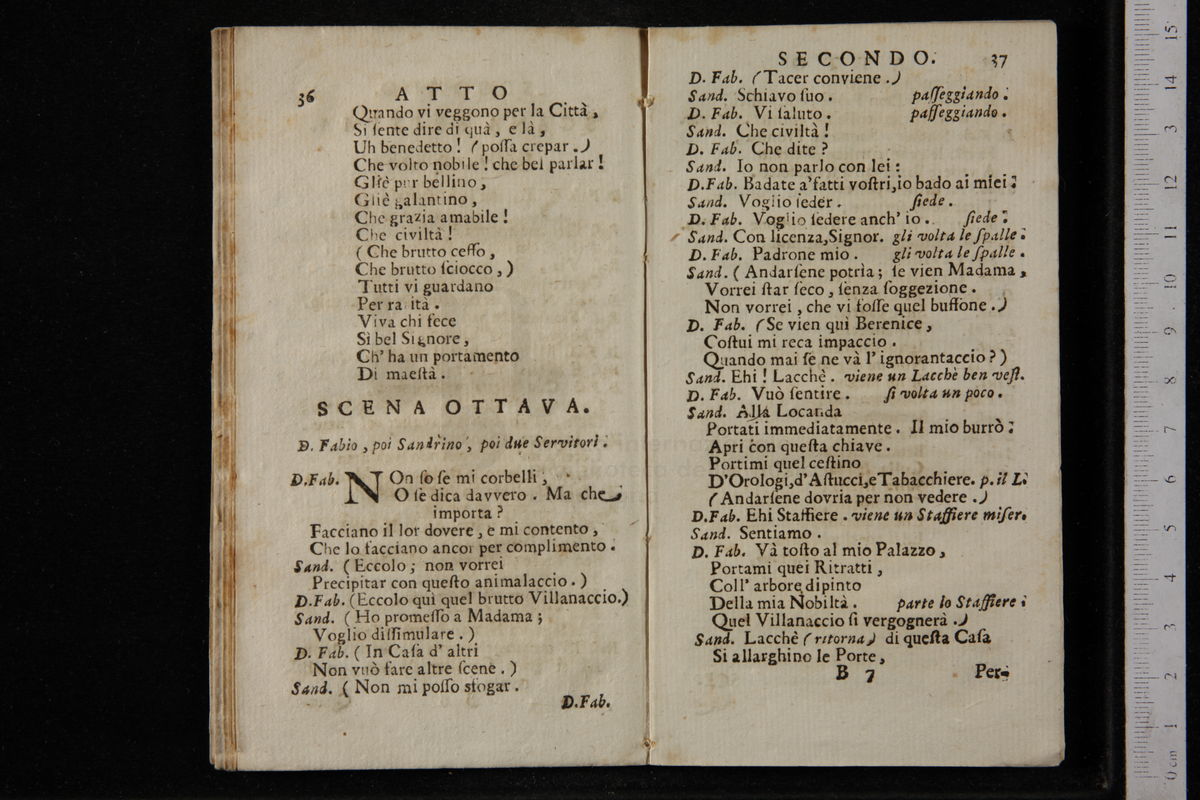 36 ATTO
Quando vi veggono per la Città,
Si ſente dire di quà, e là,
Uh benedetto! (poſſa crepar.)
Che volto nobile! che bel parlar!
Gliè pur bellino,
Gliè galantino,
Che grazia amabile!
Che civiltà!
(Che brutto ceffo,
Che brutto ſciocco,)
Tutti vi guardano
Per rarità.
Viva chi fece
Sì bel Signore,
Ch' ha un portamento
Di maeſtà.
SCENA OTTAVA.
D. Fabio, poi Sandrino, poi due Servitori.
D.Fab. NOn ſo ſe mi corbelli,
O ſe dica davvero. Ma che
importa?
Facciano il lor dovere, e mi contento,
Che lo facciano ancor per complimento.
Sand. (Eccolo; non vorrei
Precipitar con queſto animalaccio.)
D.Fab. (Eccolo quì quel brutto Villanaccio.)
Sand. (Ho promeſſo a Madama;
Voglio diſſimulare.)
D. Fab. (In Caſa d' altri
Non vuò fare altre ſcene.)
Sand. (Non mi poſſo sfogar.
D.Fab.
SECONDO. 37
D. Fab. (Tacer conviene.)
Sand. Schiavo ſuo. paſſeggiando.
D. Fab. Vi ſaluto. paſſeggiando.
Sand. Che civiltà!
D. Fab. Che dite?
Sand. Io non parlo con lei:
D.Fab. Badate a'fatti voſtri,io bado ai miei:
Sand. Voglio ſeder. ſiede.
D. Fab. Voglio ſedere anch' io. ſiede.
Sand. Con licenza,Signor. gli volta le ſpalle.
D. Fab. Padrone mio. gli volta le ſpalle.
Sand. (Andarſene potrìa; ſe vien Madama,
Vorrei ſtar ſeco, ſenza ſoggezione.
Non vorrei, che vi foſſe quel buffone.)
D. Fab. (Se vien quì Berenice,
Coſtui mi reca impaccio.
Quando mai ſe ne và l' ignorantaccio?)
Sand. Ehi! Lacchè. viene un Lacchè ben veſt.
D. Fab. Vuò ſentire. ſi volta un poco.
Sand. Allà Locanda
Portati immediatamente. Il mio burrò:
Apri con queſta chiave.
Portimi quel ceſtino
D'Orologi,d'Aſtucci,eTabacchiere. p.il L.
(Andarſene dovria per non vedere.)
D.Fab. Ehi Staffiere. viene un Staffiere miſer.
Sand. Sentiamo.
D. Fab. Và toſto al mio Palazzo,
Portami quei Ritratti,
Coll' arbore dipinto
Della mia Nobiltà. parte lo Staffiere.
Quel Villanaccio ſi vergognerà.)
Sand. Lacchè (ritorna) di queſta Caſa
Si allarghino le Porte,
B 7 Per-
0 cm 1 2 3 4 5 6 7 8 9 10 11 12 13 14 15